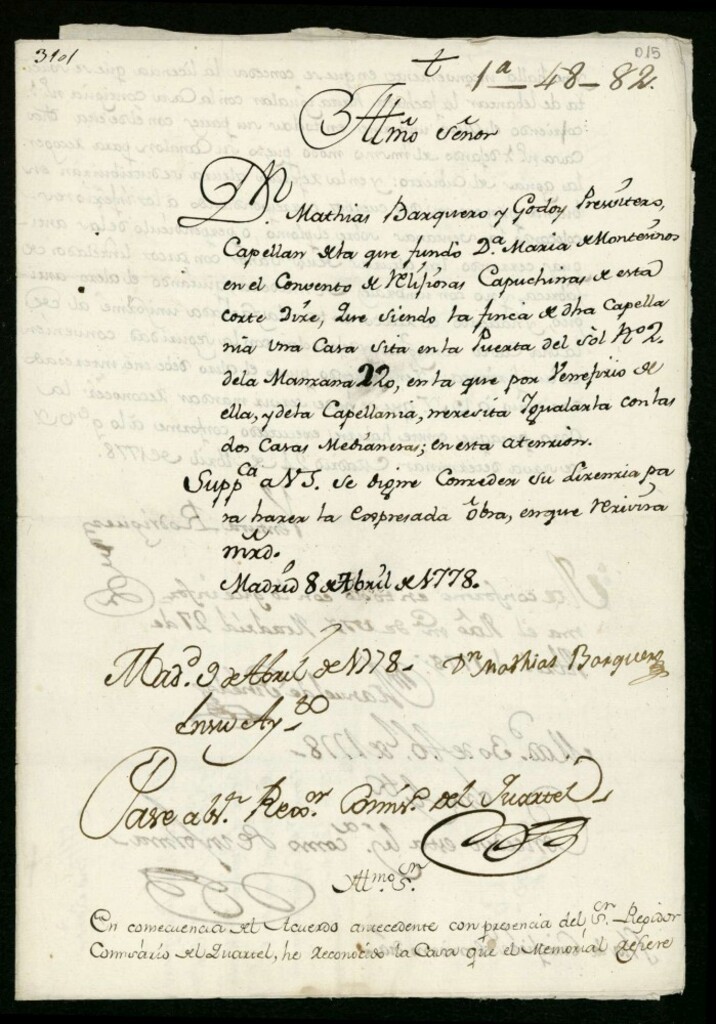 3101
015
+
1ª-48-82.
Illmô Señôr
Dn. Mathias Barquero y Godoy Presvîtero,
Capellan de la que fundó Dª. Maria de Montesinos
en el Convento de Relijiosas Capuchinas de esta
corte Dize, Que siendo la finca de dha Capella
nia una Casa sita en la Puerta del Sòl Nº 2.
de la Manzana 220, en la que por Veneficio de
ella, y de la Capellania, necesita Igualarla con las
dos Casas Medianeras; en esta atencion.
Suppca a VS. se digne Conceder su Licencia pa
ra hazer la expresada obra, en que Recivirá
mrd.
Madrid 8 de Abril de 1778.
Dn Mathias Barquero
Madd. 9 de Abril de 1778-
En su Aytto
Pase al Sr. Rexor. Comisº. del Quartel
Illmo Sr.
En consecuencia del Acuerdo antecedente con presencia del Sr. Regidor
Comisario del Quartel, he reconocido la Casa que el Memorial refiere